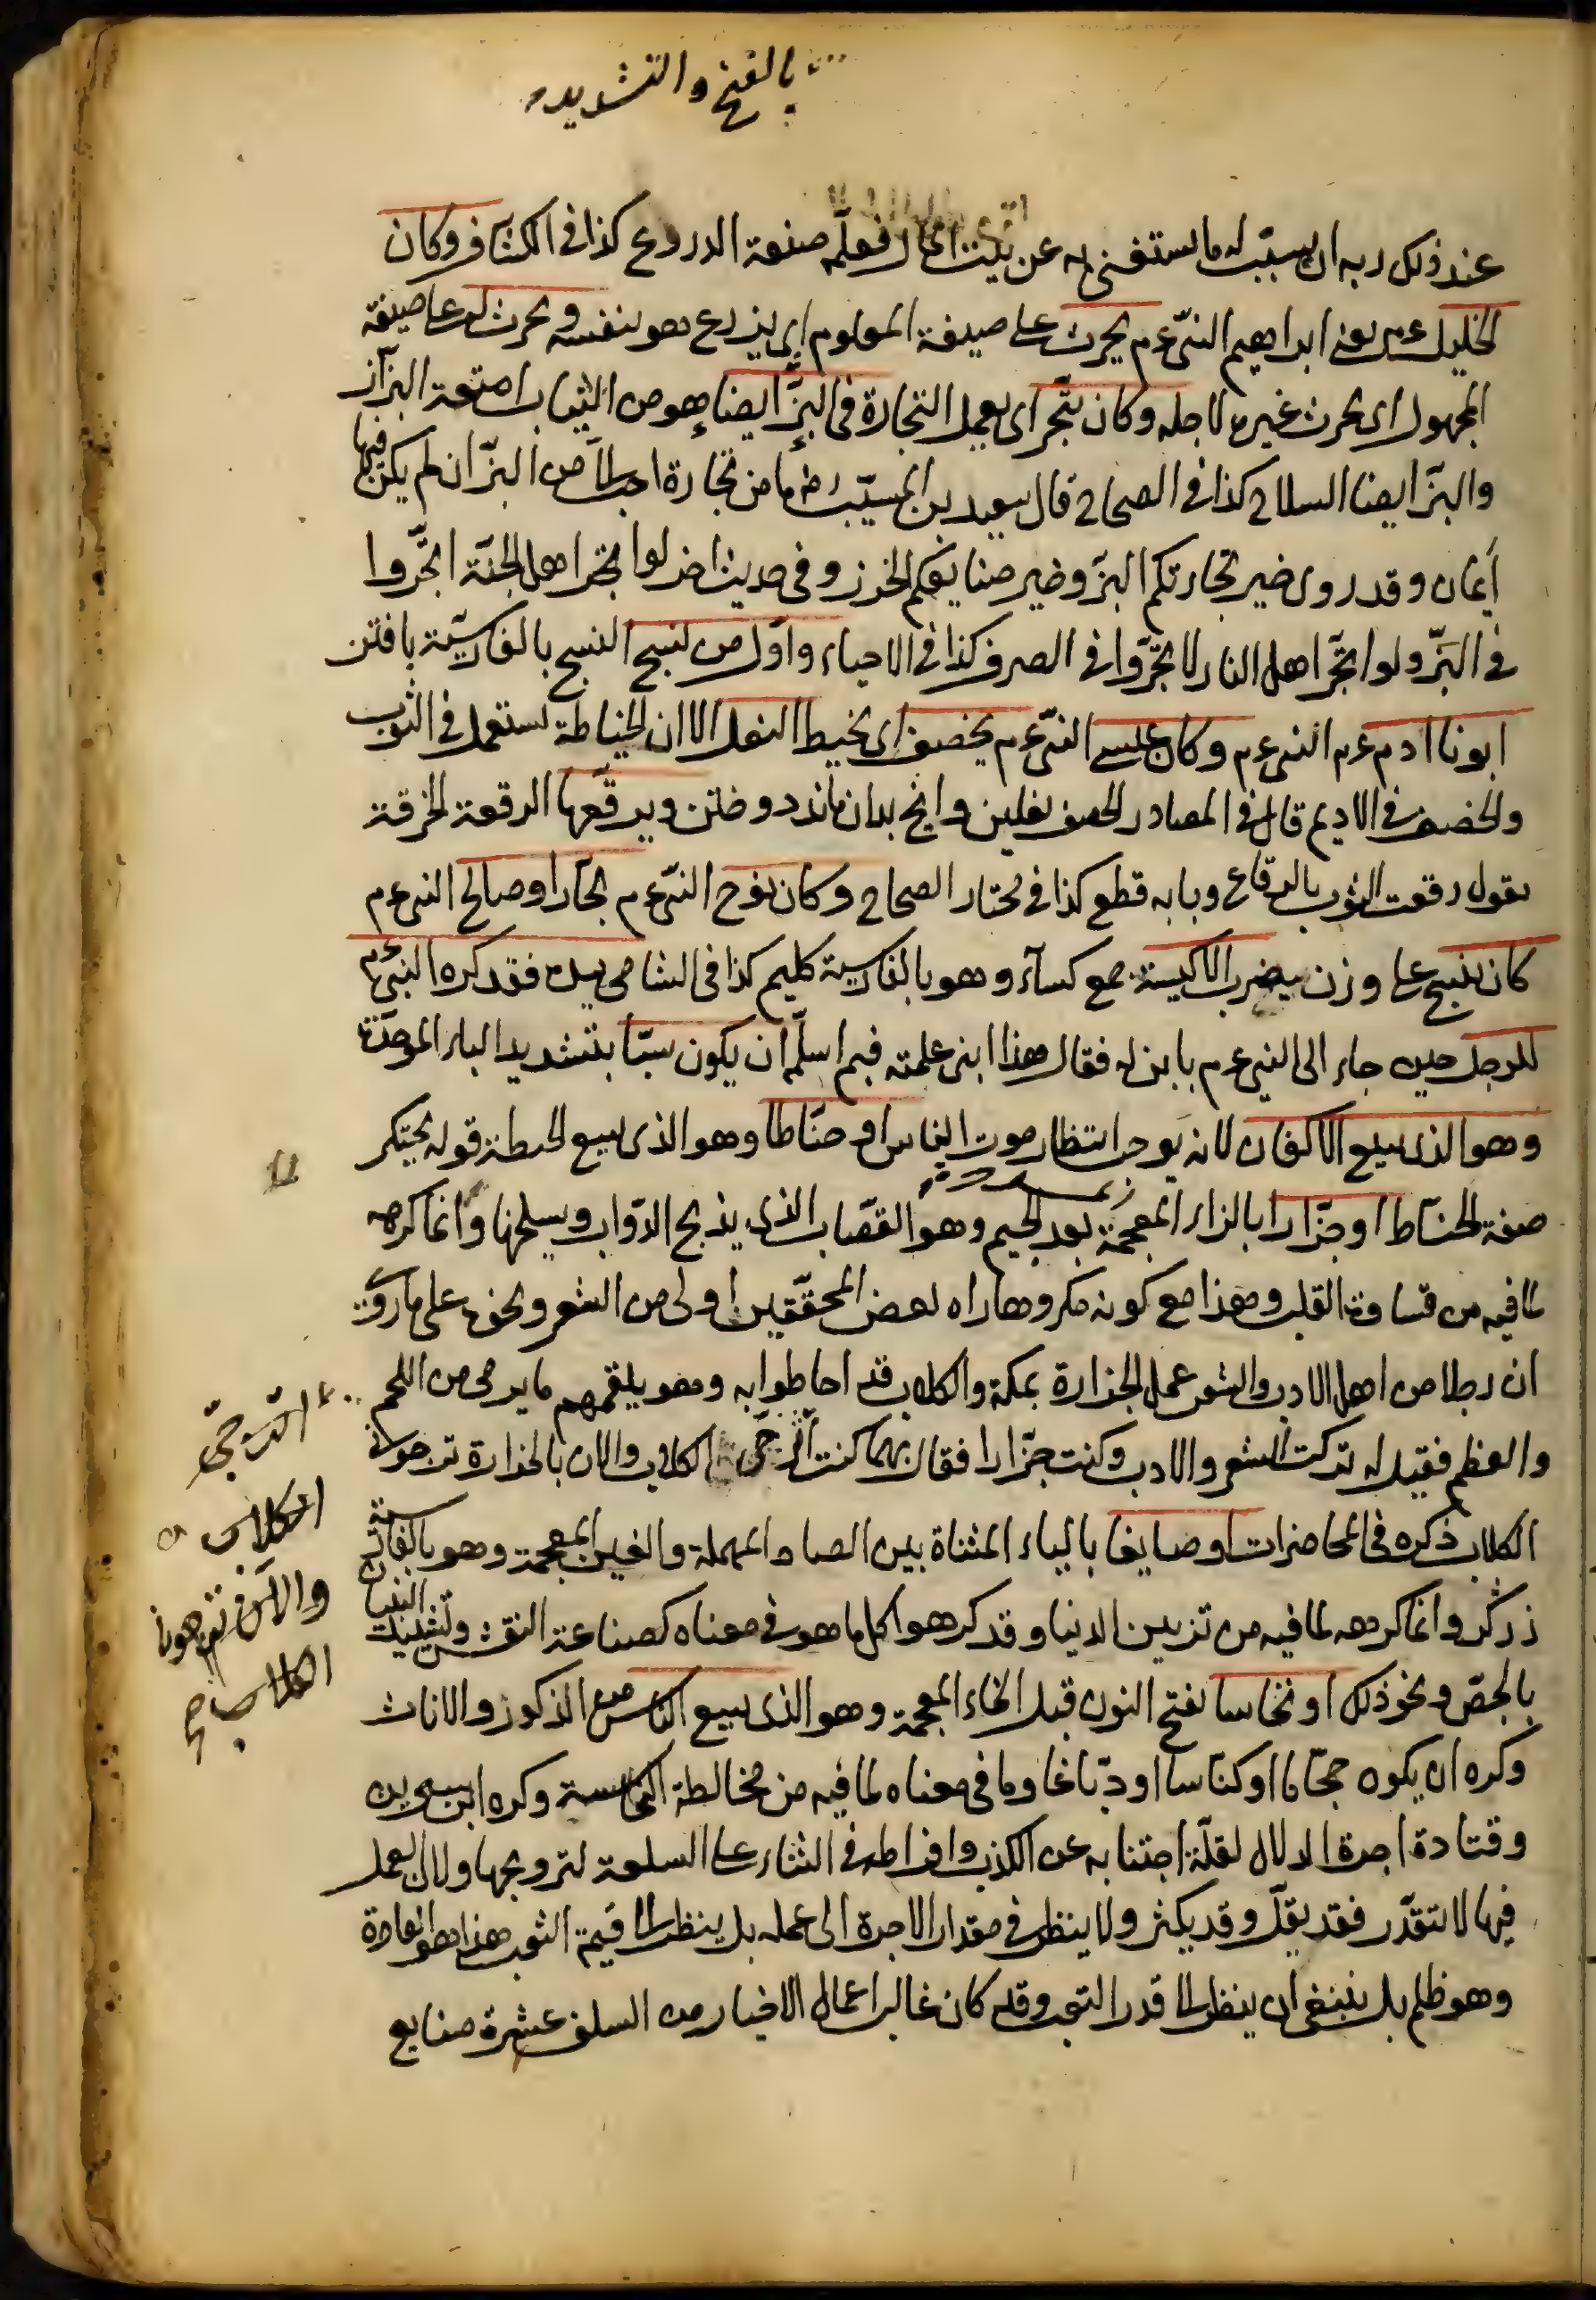 بالفتح والتشديد
عند ذلك ربه ان يسبب له ما يستغنى به عن بيت المال فعلمه صنعة الدروع كذا فى الكشاف وكان
الخليل عم يعنى ابراهيم النبى عم يحرث على صيغة المعلوم اى يزرع هو بنفسه ويحرث له على صيغة
المجهول اى يحرث غيره لاجله وكان يتجر اى يعمل التجارة فى البز ايضا هو من الثياب امتعة البزاز
والبز ايضا السلاح كذا فى الصحاح قال سعيد بن المسيب رض ما من تجارة احب الىّ من البز ان لم يكن فيها
أيمان وقد روى خير تجارتكم البز وخير صنايعكم الخرز وفى حديث اخر لو اتجر اهل الجنة اتجروا
فى البز ولو اتجر اهل النار لاتجروا فى الصرف كذا فى الاحياء واول من نسج النسج بالفارسية بافتن
ابونا ادم عم النبى عم وكان عيسى النبى عم يخصف اى يخيط النعل الا ان الخياطة تستعمل فى الثوب
والخصف فى الاديم قال فى المصادر الخصف نعلين وانج بدان ماند دوختن ويرقعها الرقعة الخرقة
يقول رقعت الثوب بالرقاع وبابه قطع كذا فى مختار الصحاح وكان نوح النبى عم نجارا وصالح النبى عم
كان ينسج على وزن يضرب الاكيسة جمع كساء وهو بالفارسية كليم كذا فى الشامى بيده فقد كره النبى عم
للرجل حين جاء الى النبى عم بابن له فقال هذا ابنى علمته فبم اسلمه ان يكون سبّا بتشديد الباء الموحدة
وهو الذى يبيع الاكفان لانه يوجب انتظار موت الناس او حناطا وهو الذى يبيع الحنطة قوله يحتكر
صفة الحناط او جزارا بالزاء المعجمة بعد الجيم وهو القصاب الذى يذبح الدواب ويسلخها وانما كرهه
لما فيه من قساوة القلب وهذا مع كونه مكروها راه بعض المحققين اولى من الشعر ونحوه على ما روى
ان رجلا من اهل الادب والشعر عمل الجزارة بمكة والكلاب قد احاطوا به وهو يلقمهم ما يرمى من اللحم
والعظم فقيل له تركت الشعر والادب وكنت جزارا فقال بهما كنت اترجى الكلاب والان بالجزارة ترجونى
الكلاب ذكره فى المحاضرات او صايغا بالياء المثناة بين الصاد المهملة والغين المعجمة وهو بالفارسية
زركر وانما كرهه لما فيه من تزيين الدنيا وقد كرهوا كل ما هو فى معناه كصناعة النقش وتشييد البنيان
بالجص ونحو ذلك او نخاسا بفتح النون قبل الخاء المعجمة وهو الذى يبيع الناس من الذكور والاناث
وكره ان يكون حجاما او كناسا او دباغا وما فى معناه لما فيه من مخالطة النجاسة وكره ابن سيرين
وقتادة اجرة الدلال لقلة اجتنابه عن الكذب وافراطه فى الثناء على السلعة لترويجها ولان العمل
فيها لا يتقدر فقد يقل وقد يكثر ولا ينظر فى مقدار الاجرة الى عمله بل ينظر الى قيمة الثوب هذا هو العادة
وهو ظلم بل ينبغى ان ينظر الى قدر التعب وقد كان غالب اعمال الاخيار من السلف عشرة صنايع
اترجى
الكلاب
والآن ترجونى
الكلاب صح